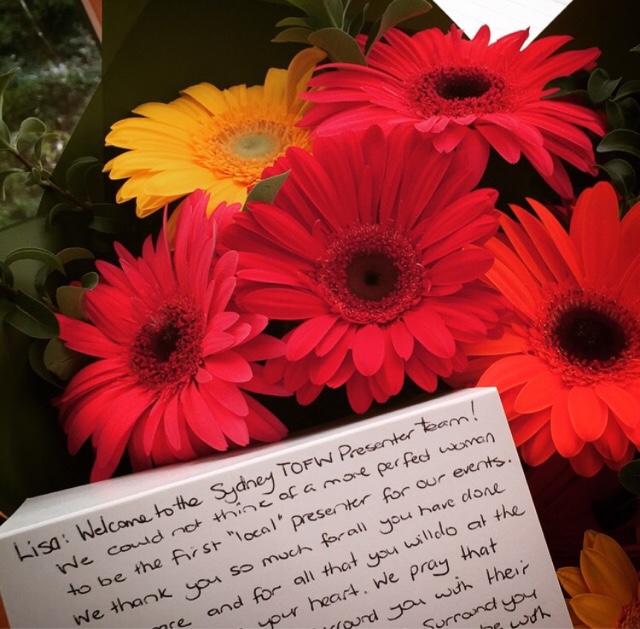 Lisa: Welcome to the Sydney TOFW Presenter team!
We could not think of a more perfect woman
to be the first "local" presenter for our events.
We thank you so much for all you have done
and for all that you will do at the
your heart. We pray that
surround you with their
Surround you
be with